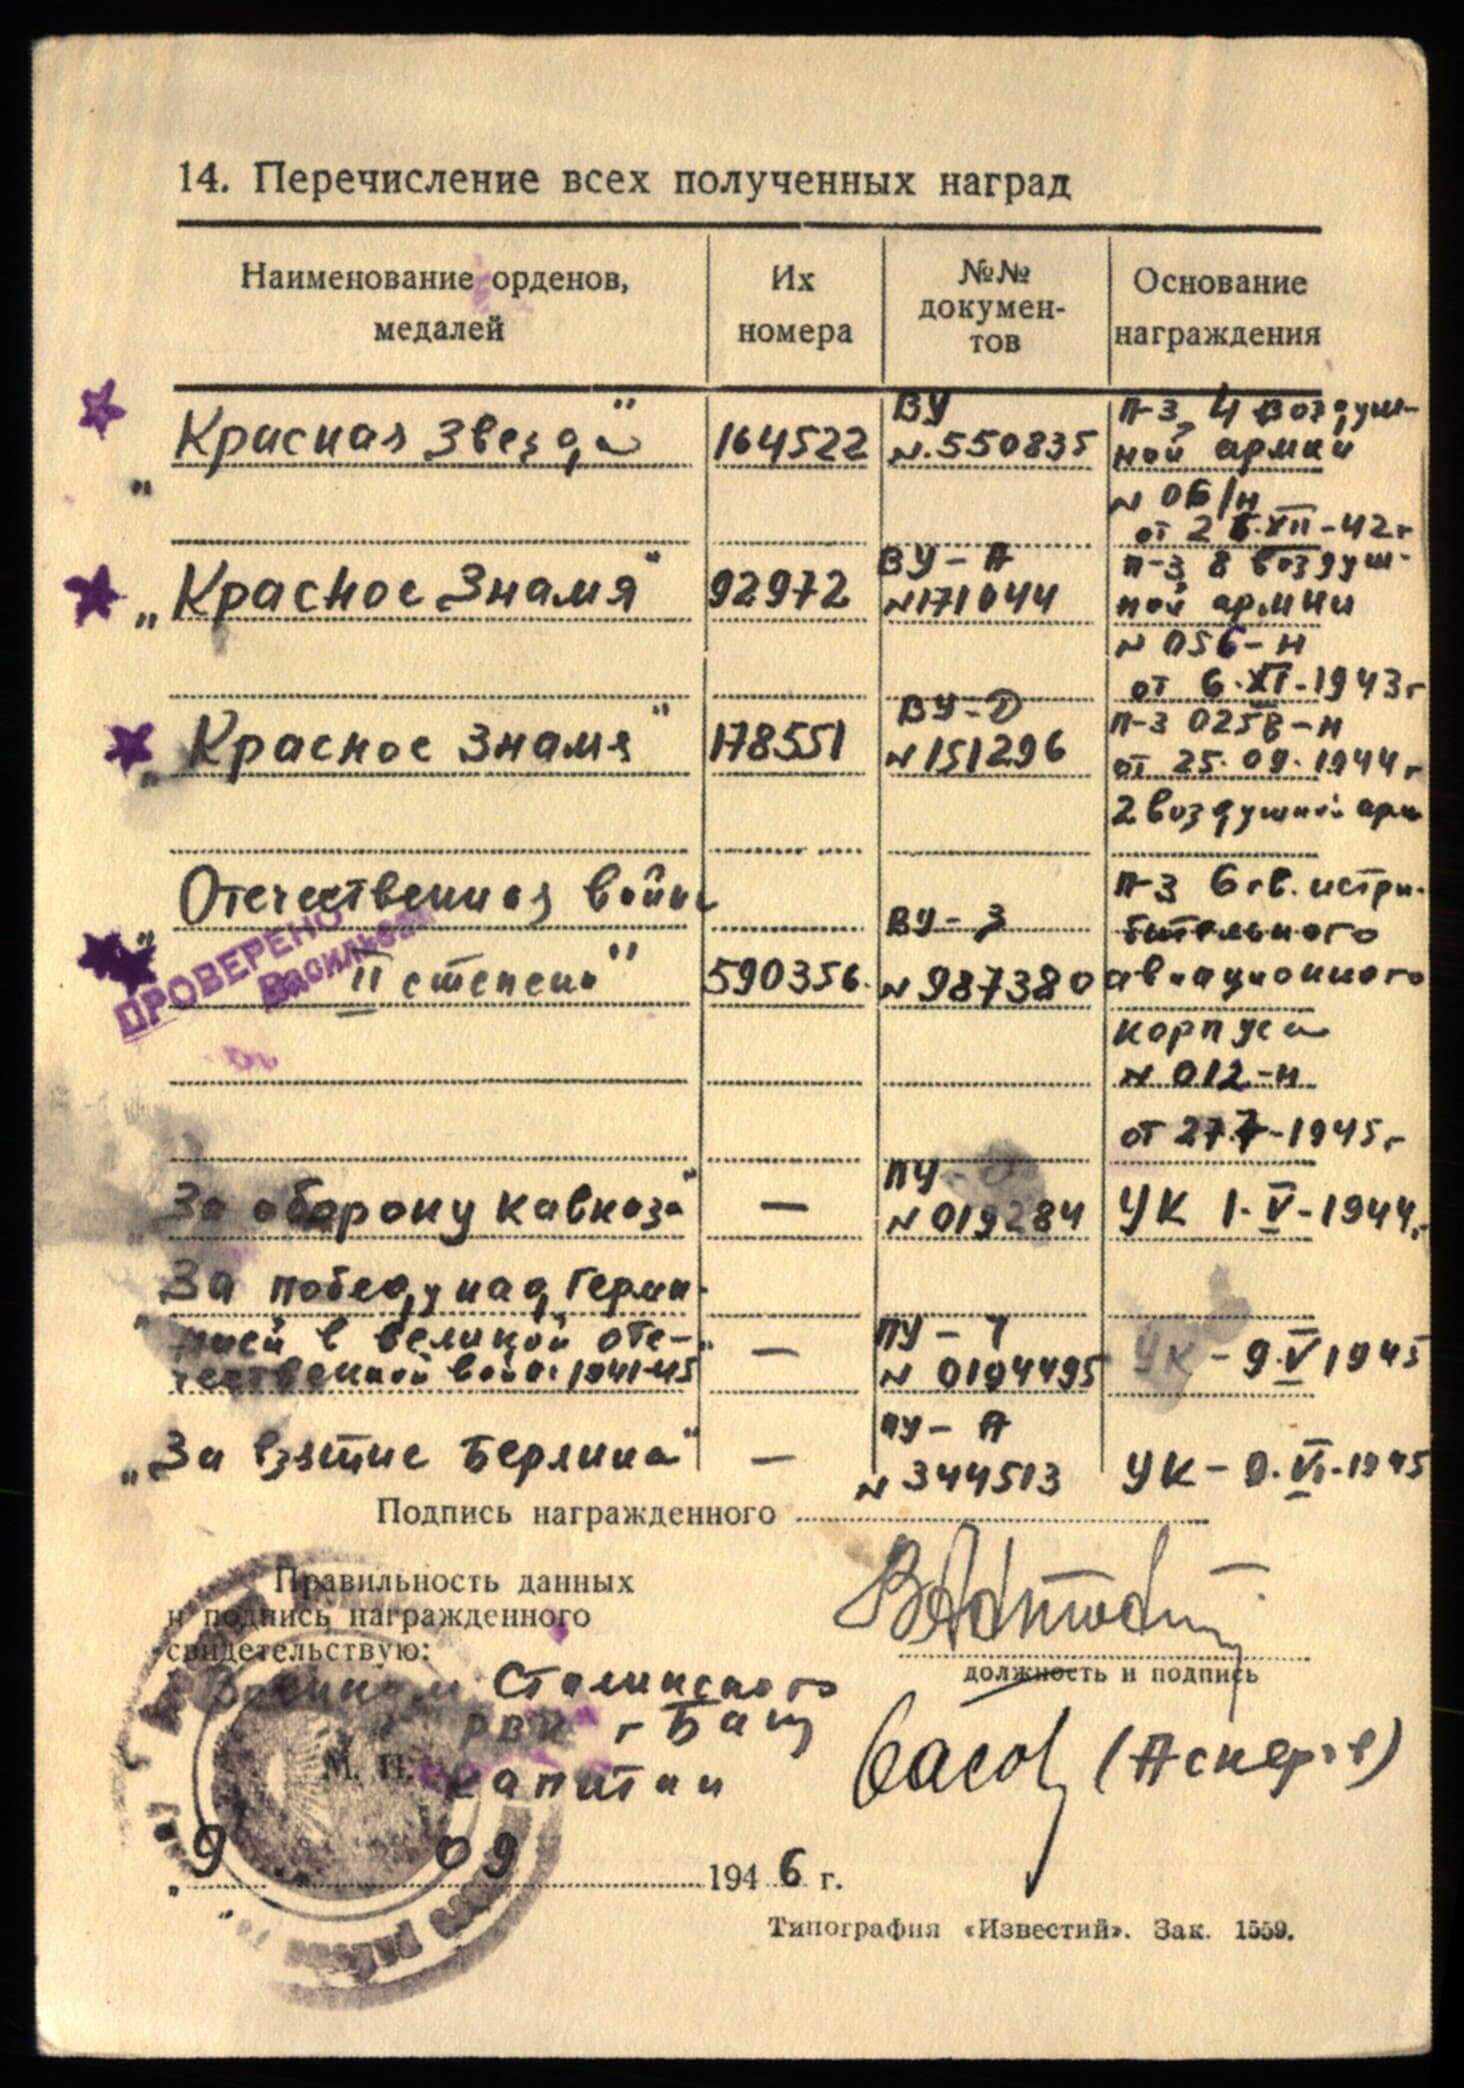 14. Перечисление всех полученных наград
Наименование орденов, медалей
Их номера
№№ докумен-тов
Основание награждения
„Красная Звезда"
164522
ВУ
N.550835
П-З 4 воздуш-
ной армии
N 06/н
от 26.XII-42г
„Красное Знамя"
92972
ВУ-А
N171044
П-З 8 воздуш-
ной армии
N 056-н
от 6.XI-1943г
„Красное Знамя"
178551
ВУ-D
N151296
П-З 0258-н
от 25.09.1944г
2 воздушной арм
„Отечественная война
II степени"
590356.
ВУ-З
N987380
П-З 6 гв. истри-
бительного
авиационного
корпуса
N 012-н
от 27.7-1945г
ПРОВЕРЕНО
„За оборону Кавказа"
—
ПУ-
N019284
УК 1.V-1944г.
„За победу над Герма-
нией в великой оте-
чественной войне 1941-45"
—
ПУ-Т
N 0194495
УК-9.V 1945
„За взятие Берлина"
—
ПУ-А
N 344513
УК-9.VI-1945
Подпись награжденного
Правильность данных
и подпись награжденного
свидетельствую:
должность и подпись
Военком Сталинского
РВК г Баку
М. П.
капитан
(Аскеров)
„9" 09 1946 г.
Типография «Известий». Зак. 1559.